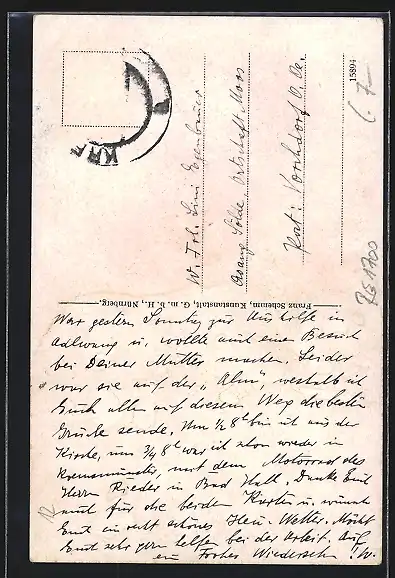 War gestern Sonntag zur Aushilfe in
Adlwang u. wollte auf einen Besuch
bei Deiner Mutter machen. Leider
war sie auf der „Alm", weshalb ich
Euch allen auf diesem Weg die besten
Grüße sende. Um ½ 8ʰ bin ich aus der
Kirche, um ¾ 8ʰ war ich schon wieder in
Kremsmünster, mit dem Motorrad des
Herrn Rieder in Bad Hall. Danke Euch
auch für die beiden Karten u. wünsche
Euch ein recht schönes Heu-Wetter. Möcht
Euch sehr gern helfen bei der Arbeit. Auf
ein Frohes Wiedersehn! W.
Franz Schemm, Kunstanstalt, G. m. b. H., Nürnberg.
W. Frl. Lini
Asang Sölde Ortschaft Moos
Post: Vorchdorf O. Oe.
15894
KRE